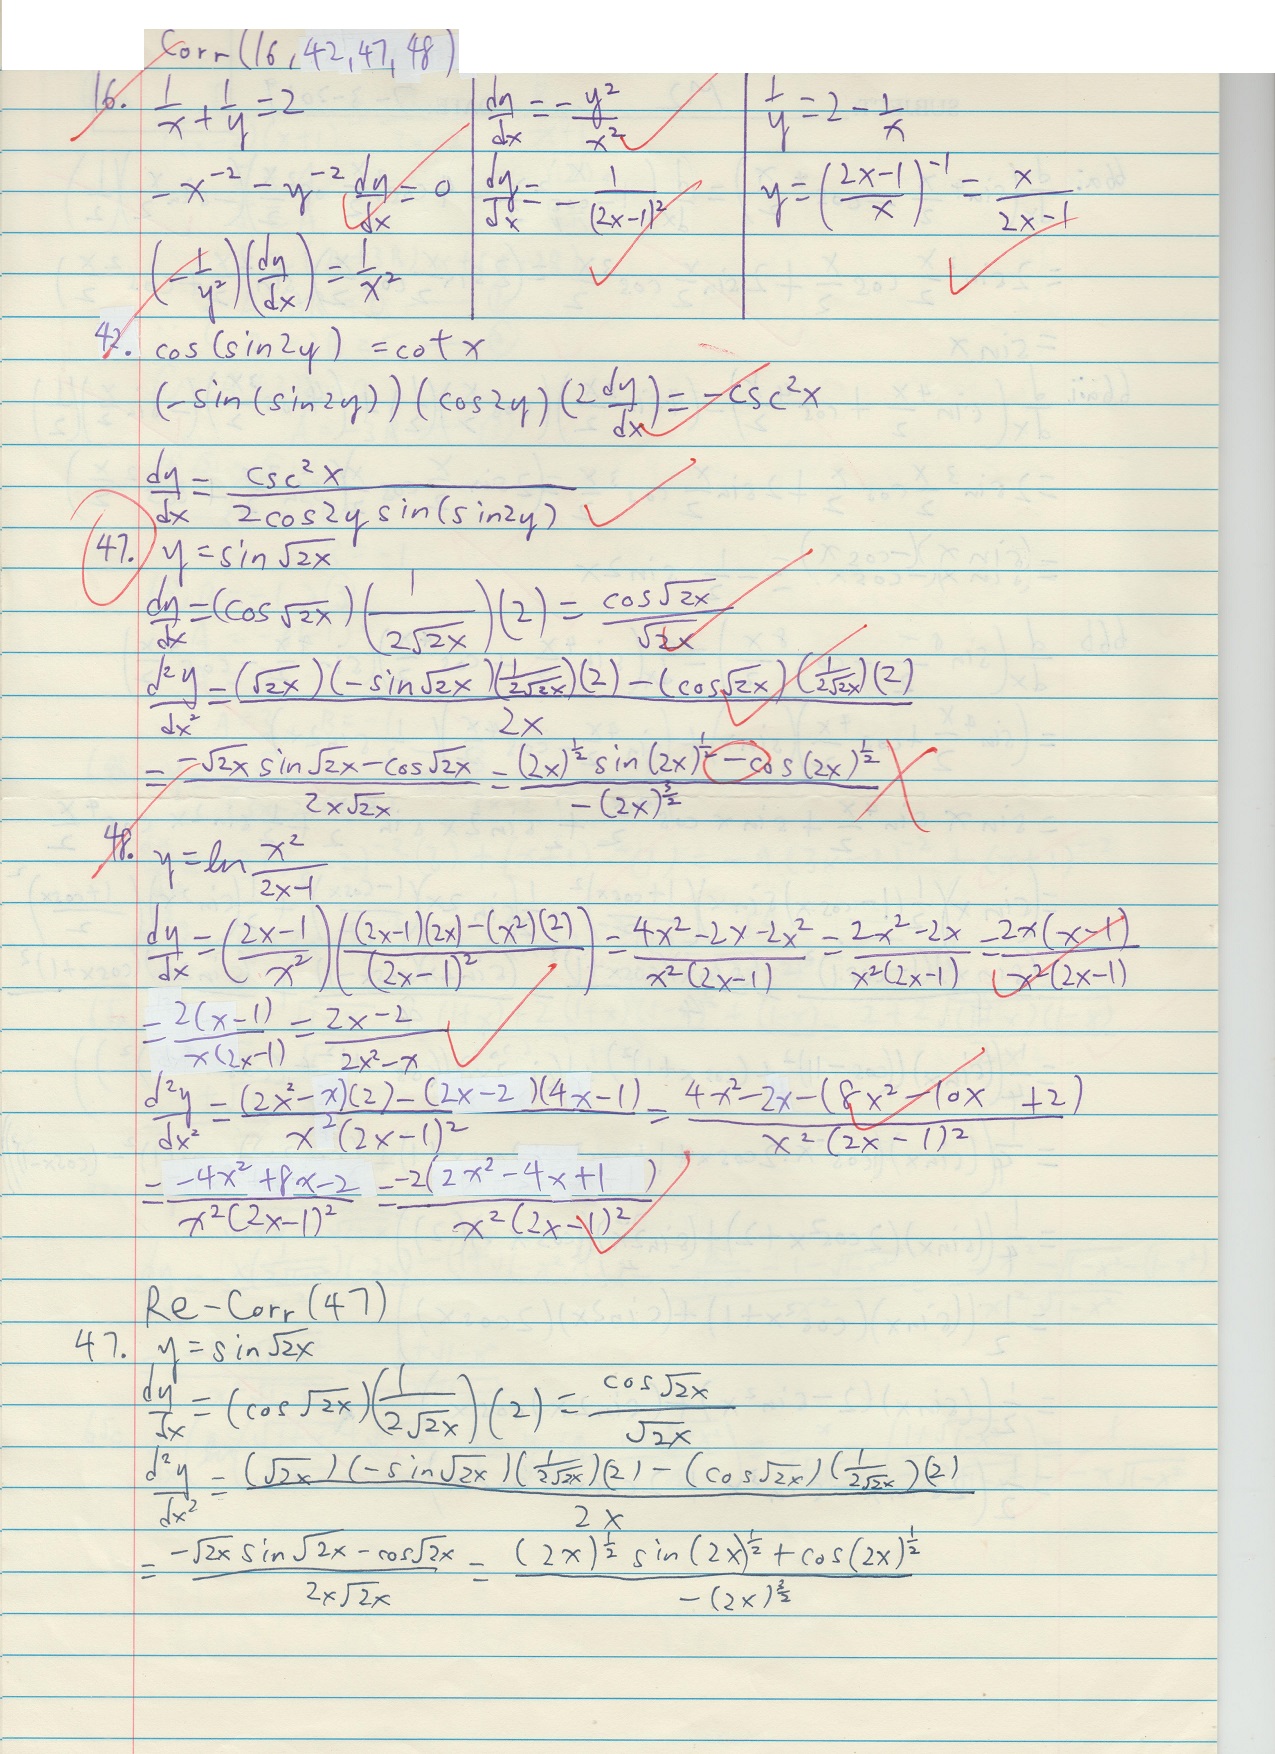 Corr(16, 42, 47, 48)
16. 1/x + 1/y = 2
-x^-2 - y^-2 dy/dx = 0
(-1/y²)(dy/dx) = 1/x²
dy/dx = -y²/x²
dy/dx = -1/(2x-1)²
1/y = 2 - 1/x
y = ((2x-1)/x)^-1 = x/(2x-1)
42. cos(sin2y) = cot x
(-sin(sin2y))(cos2y)(2dy/dx) = -csc²x
dy/dx = csc²x/(2cos2y sin(sin2y))
47. y = sin√2x
dy/dx = (cos√2x)(1/(2√2x))(2) = cos√2x/√2x
d²y/dx² = ((√2x)(-sin√2x)(1/(2√2x))(2) - (cos√2x)(1/(2√2x))(2))/2x
= (-√2x sin√2x - cos√2x)/(2x√2x) = ((2x)^½ sin(2x)^½ - cos(2x)^½)/(-(2x)^(3/2))
48. y = ln x²/(2x-1)
dy/dx = ((2x-1)/x²)(((2x-1)(2x)-(x²)(2))/(2x-1)²) = (4x²-2x-2x²)/(x²(2x-1)) = (2x²-2x)/(x²(2x-1)) = 2x(x-1)/(x²(2x-1))
= 2(x-1)/(x(2x-1)) = (2x-2)/(2x²-x)
d²y/dx² = ((2x²-x)(2)-(2x-2)(4x-1))/(x²(2x-1)²) = (4x²-2x-(8x²-10x+2))/(x²(2x-1)²)
= (-4x²+8x-2)/(x²(2x-1)²) = -2(2x²-4x+1)/(x²(2x-1)²)
Re-Corr(47)
47. y = sin√2x
dy/dx = (cos√2x)(1/(2√2x))(2) = cos√2x/√2x
d²y/dx² = ((√2x)(-sin√2x)(1/(2√2x))(2) - (cos√2x)(1/(2√2x))(2))/2x
= (-√2x sin√2x - cos√2x)/(2x√2x) = ((2x)^½ sin(2x)^½ + cos(2x)^½)/(-(2x)^(3/2))